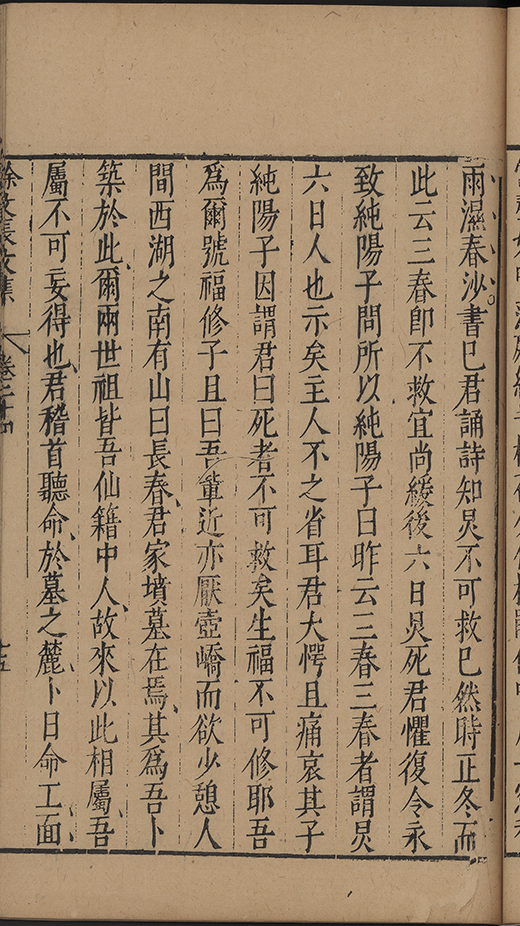 雨濕春沙書已君誦詩知炅不可救已然時正冬而
此云三春卽不救宜尚緩後六日炅死君懼復令永
致純陽子問所以純陽子曰昨云三春三春者謂炅
六日人也示矣主人不之省耳君大愕且痛哀其子
純陽子因謂君曰死者不可救矣生福不可修耶吾
爲爾號福修子且曰吾輩近亦厭壺嶠而欲少憩人
間西湖之南有山曰長春君家墳墓在焉其爲吾卜
築於此爾兩世祖皆吾仙籍中人故來以此相屬吾
屬不可妄得也君稽首聽命於墓之麓卜日命工面
徐文長文集
卷二十四